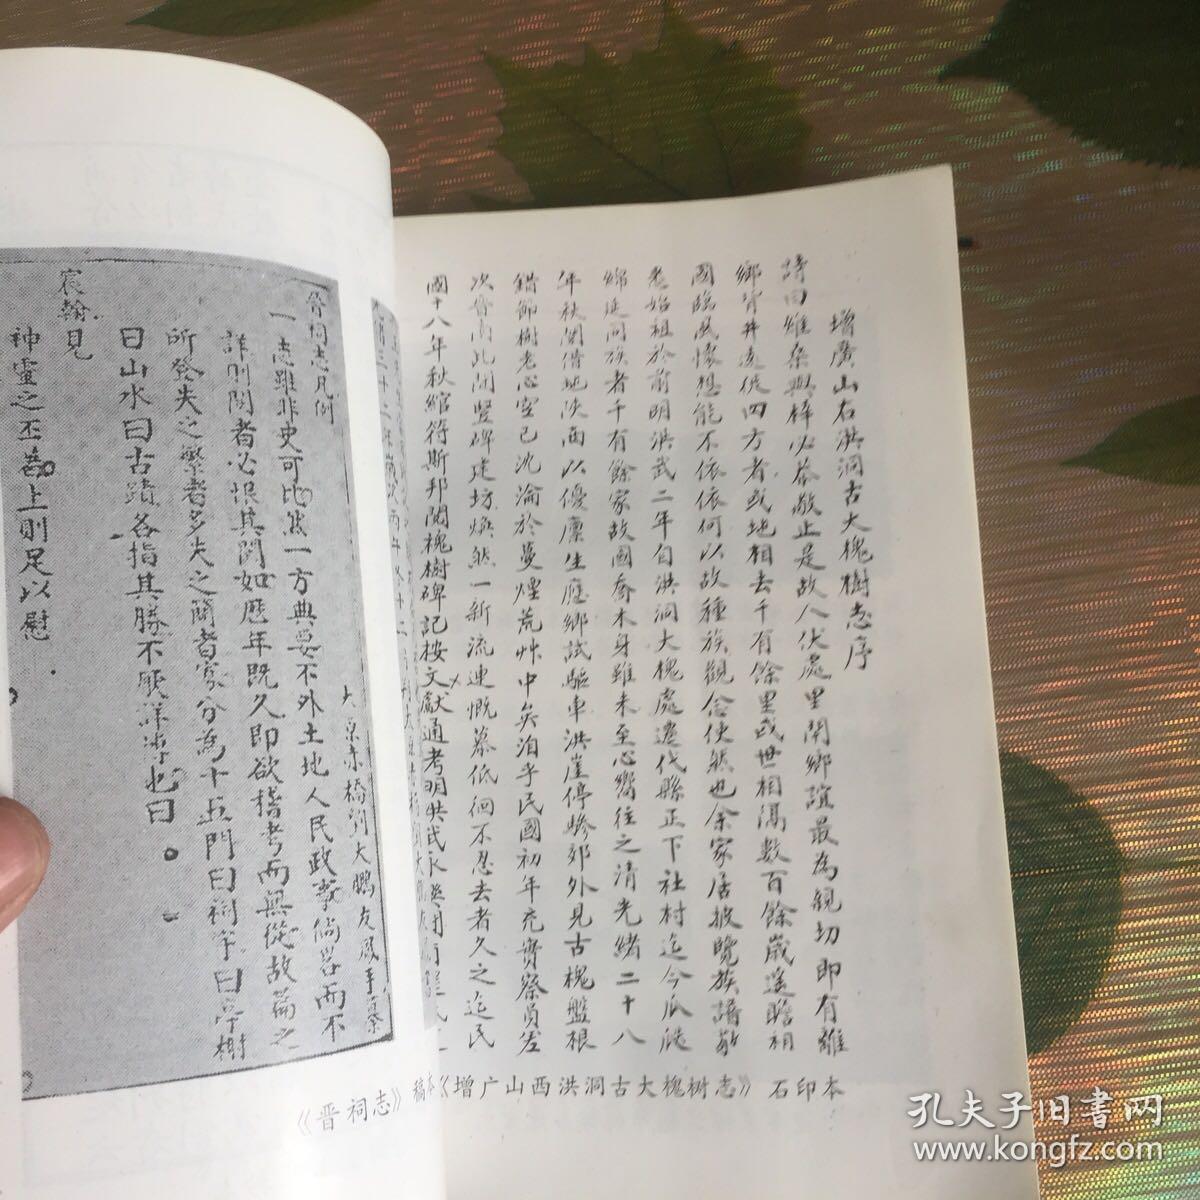 增廣山右洪洞古大槐樹志序
詩曰維桑與梓必恭敬止是故人伏處里閈鄉誼最為親切即有離
鄉背井遠徙四方者或地相去千有餘里或世相隔數百餘歲遙瞻祖
國臨風懷想能不依依何以故種族觀念使然也余家居披覽族譜敬
悉始祖於前明洪武二年自洪洞大槐處遷代縣正下社村迄今瓜瓞
綿延同族者千有餘家故國喬木身雖未至心嚮往之清光緒二十八
年秋闈借地陝西以優廩生應鄉試驅車洪崖停驂郊外見古槐盤根
錯節樹老心空已沈淪於蔓煙荒艸中矣洎乎民國初年充實察員差
次晉南比聞豎碑建坊煥然一新流連慨慕低徊不忍去者久之迄民
國十八年秋綰符斯邦閱槐樹碑記按文獻通考明洪武永樂間
《增广山西洪洞古大槐树志》石印本
晉祠志凡例
太原赤橋劉大鵬友鳳手纂
一志雖非史可比然一方典要不外土地人民政事倘略而不
詳則閱者必恨其闕如歷年既久即欲稽考而無從故篇之
所登失之繁者多失之簡者寡分為十五門曰祠宇曰亭榭
曰山水曰古蹟各指其勝不厭詳博也曰
宸翰見
神靈之丕著上則足以慰
《晋祠志》稿本
孔夫子旧书网
www.kongfz.com